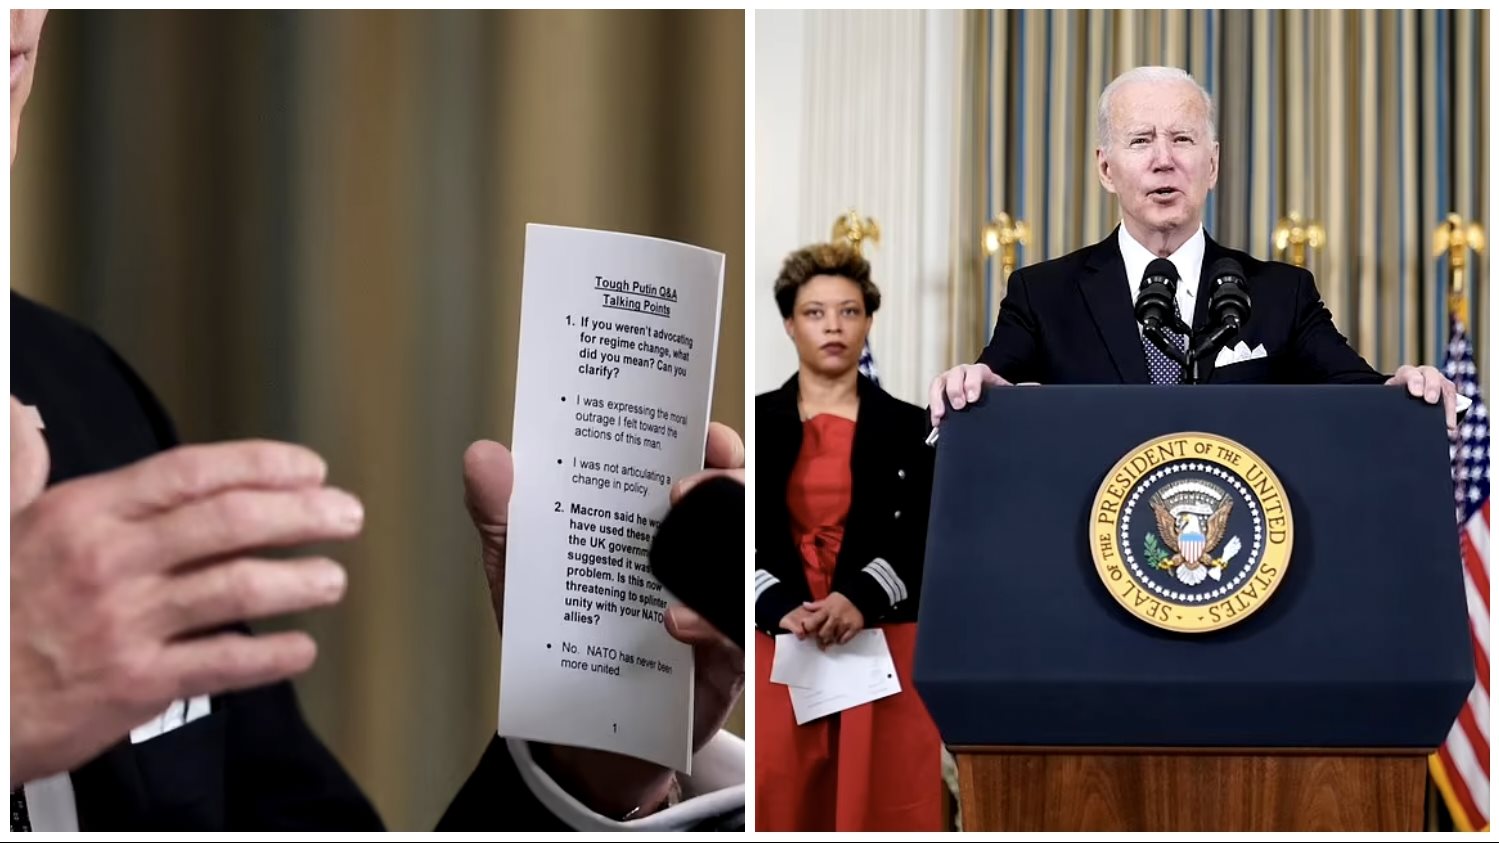 Tough Putin Q&A
Talking Points
1. If you weren't advocating
for regime change, what
did you mean? Can you
clarify?
• I was expressing the moral
outrage I felt toward the
actions of this man.
• I was not articulating a
change in policy.
2. Macron said he
have used these
the UK
suggested it was
problem. Is this now
threatening to splinter
unity with your NATO
allies?
• No. NATO has never been
more united.
1
SEAL OF THE PRESIDENT OF THE UNITED STATES